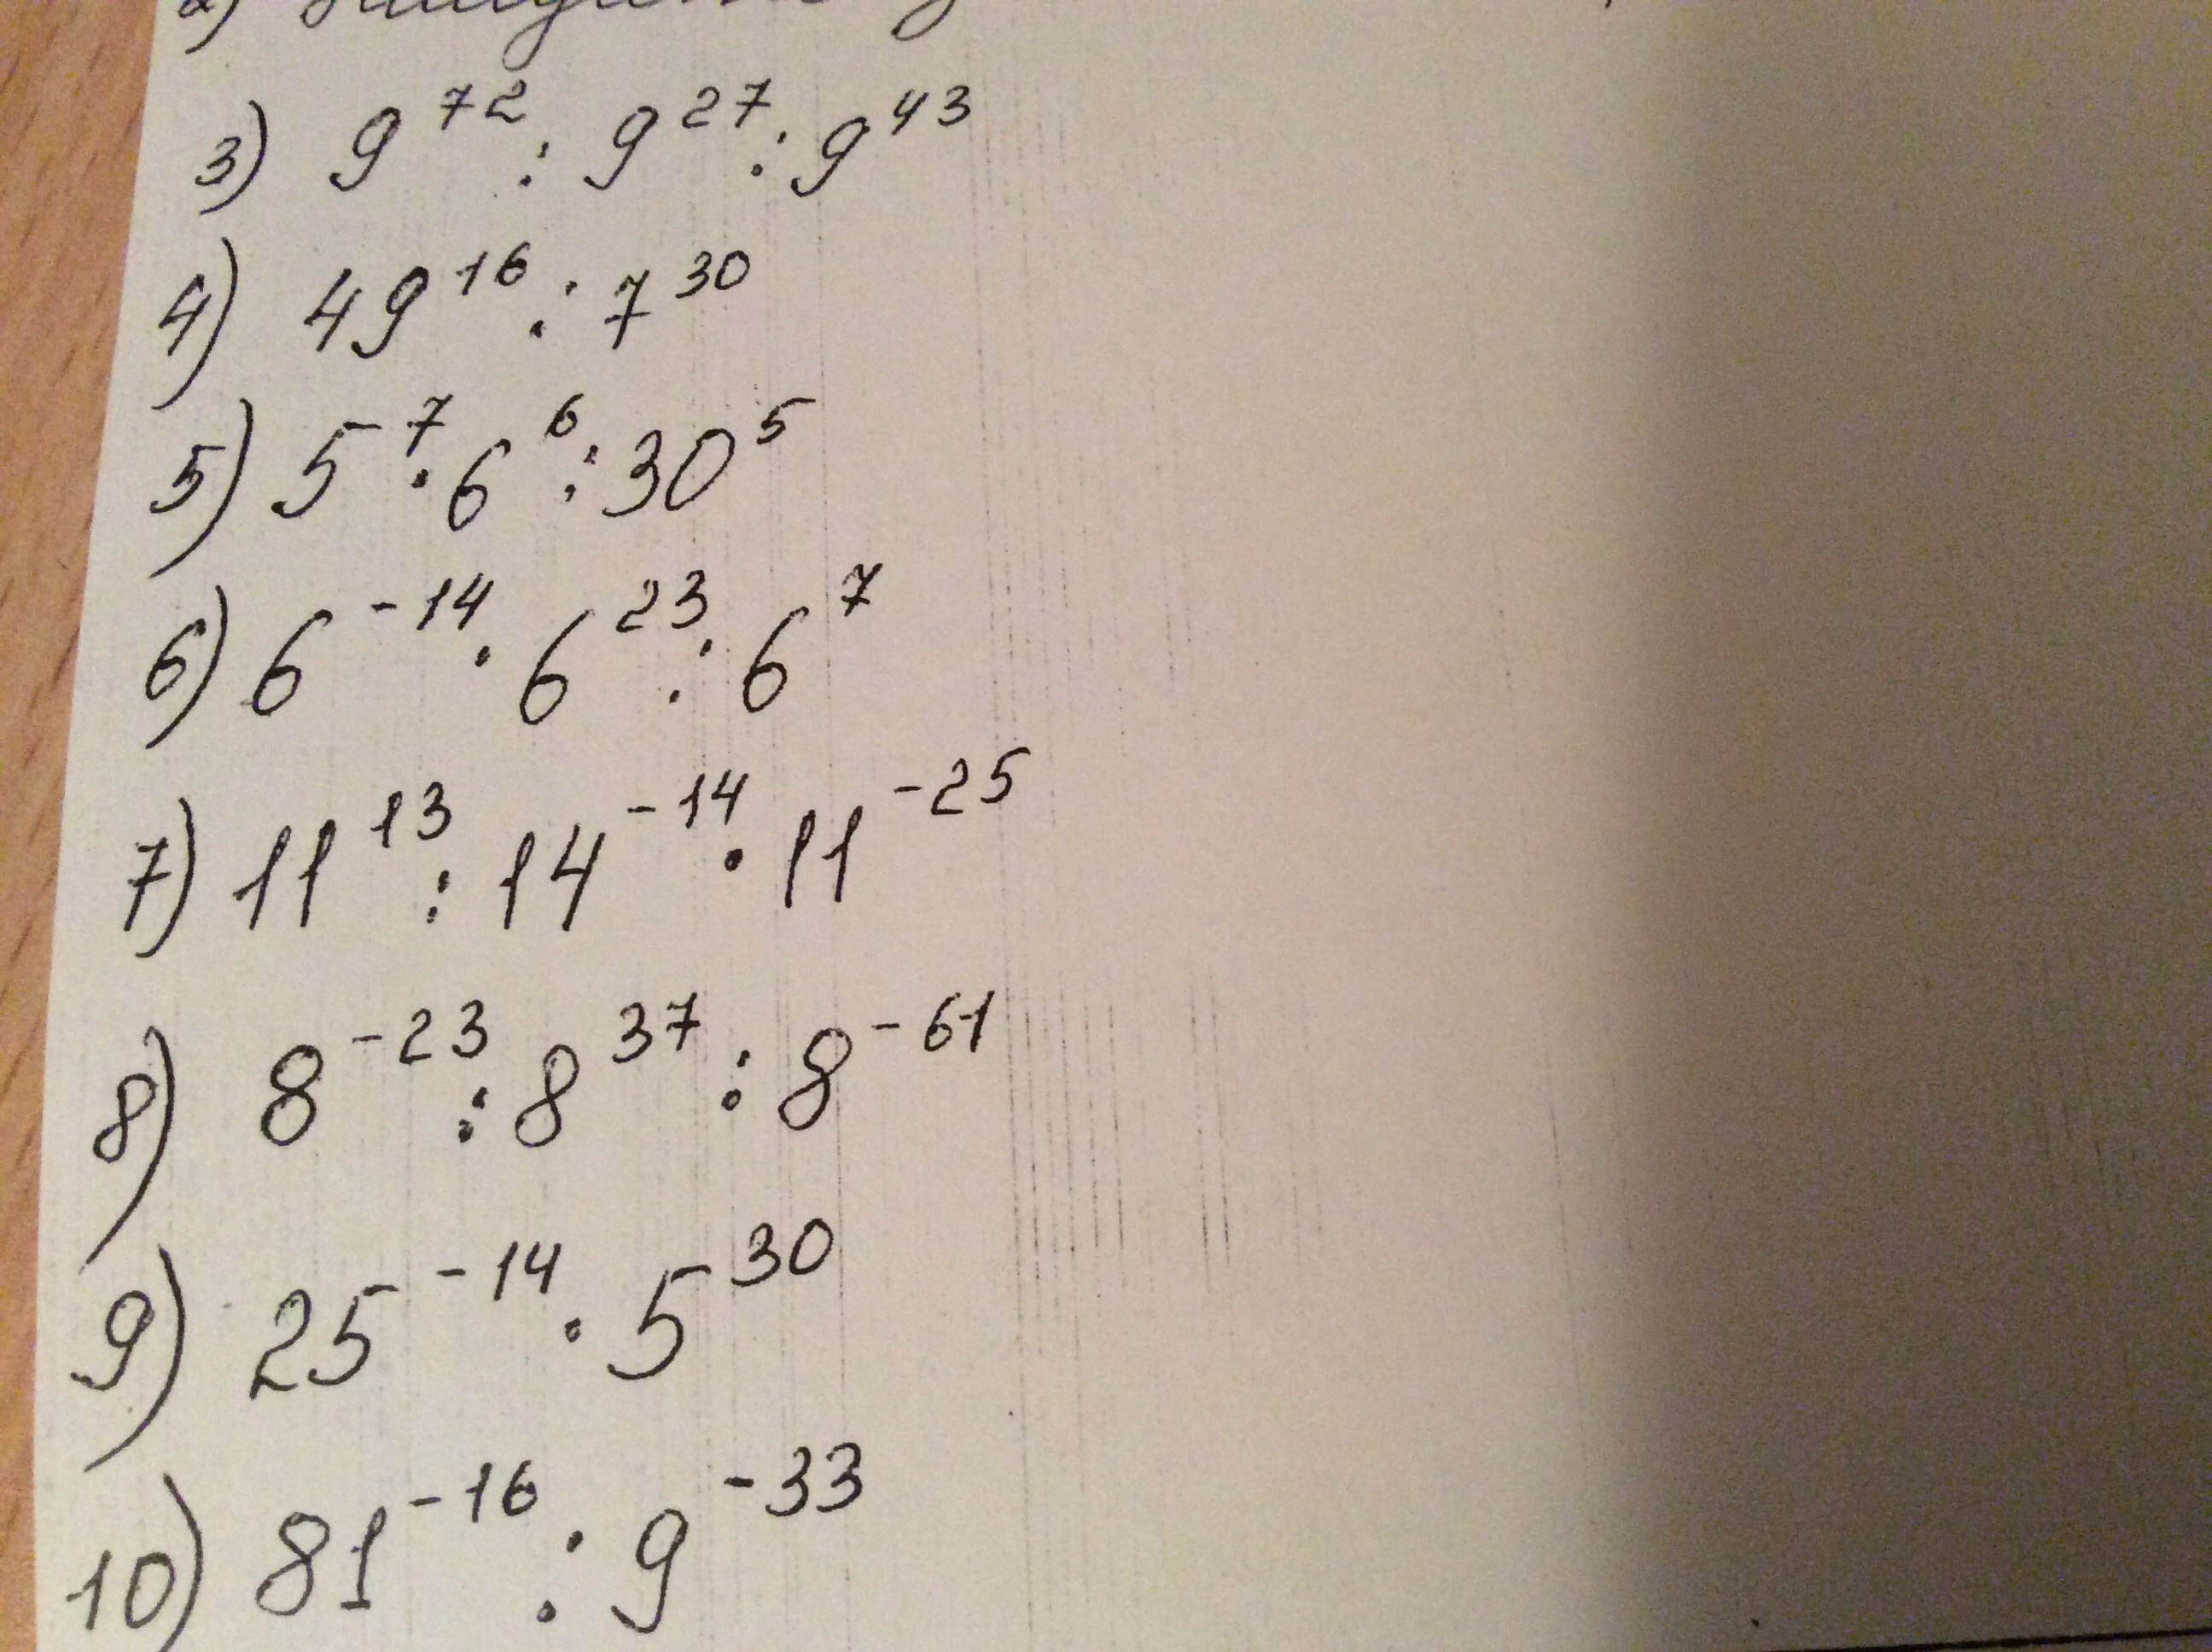 2)
3) 9^72 : 9^27 : 9^43
4) 49^16 : 7^30
5) 5^7 · 6^6 : 30^5
6) 6^-14 · 6^23 : 6^7
7) 11^13 : 14^-14 · 11^-25
8) 8^-23 : 8^37 : 8^-61
9) 25^-14 · 5^30
10) 81^-16 : 9^-33